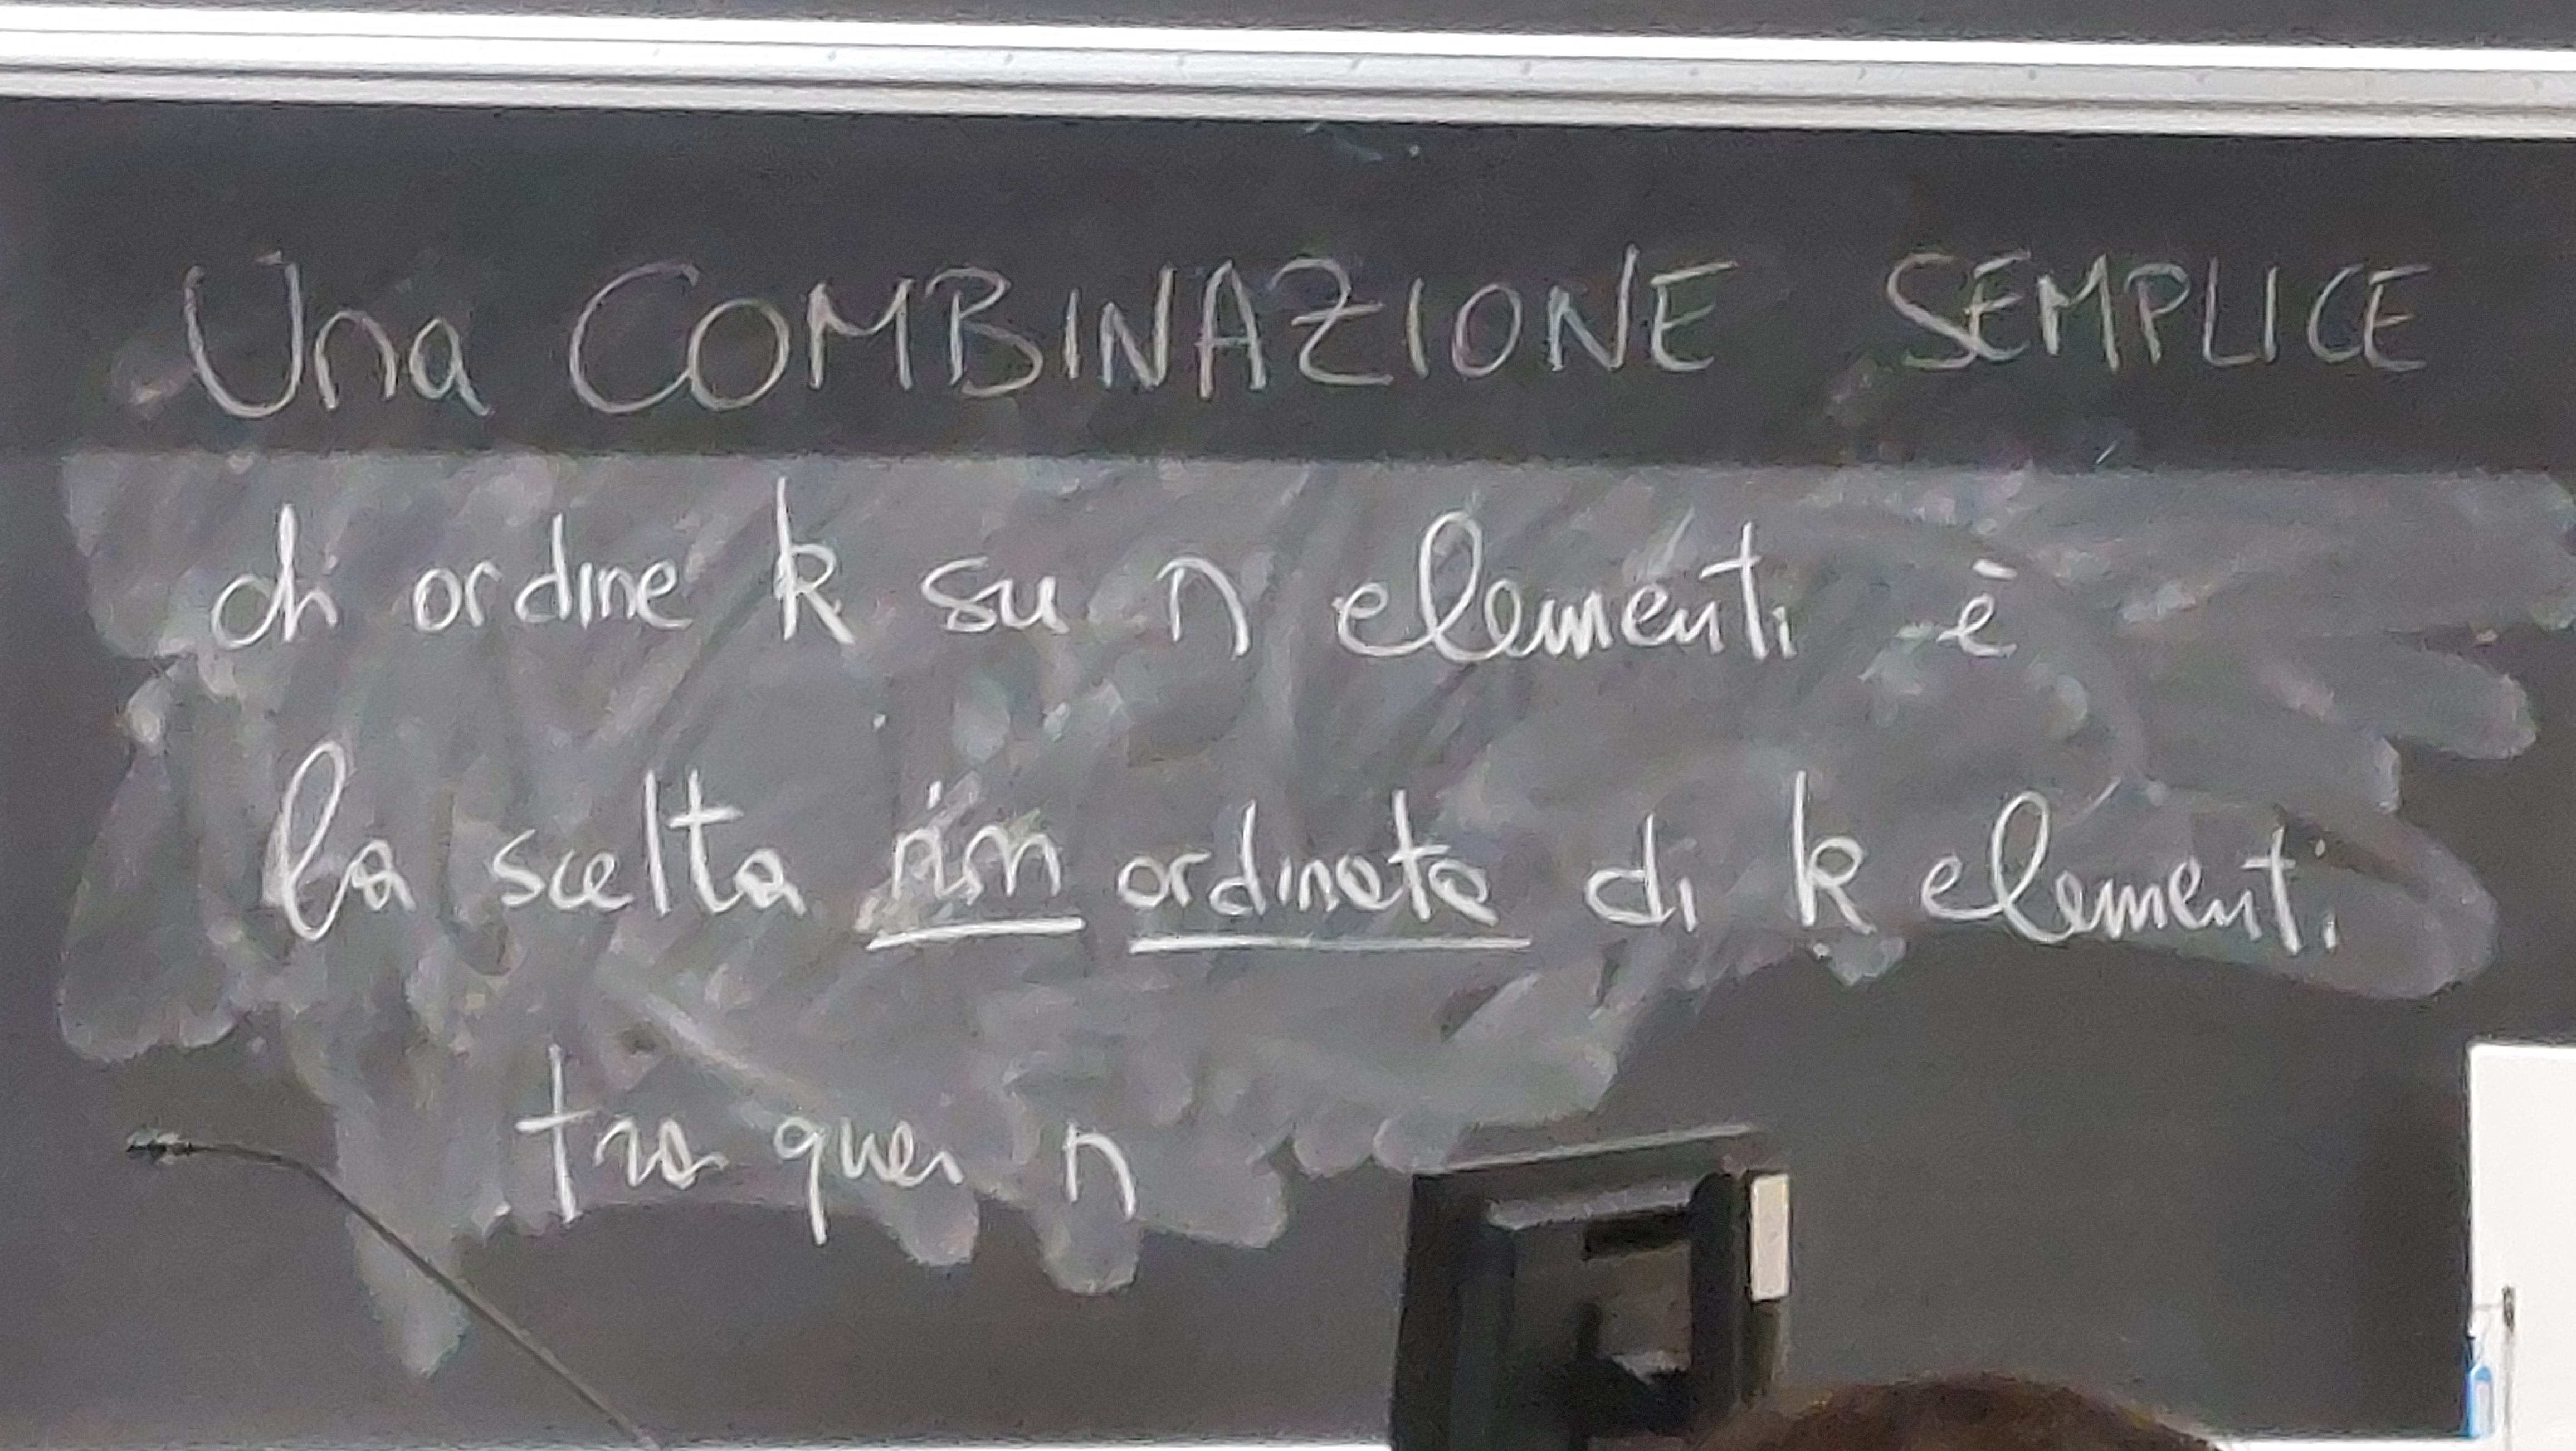 Una COMBINAZIONE SEMPLICE
di ordine k su n elementi è
la scelta non ordinata di k elementi
tra quei n